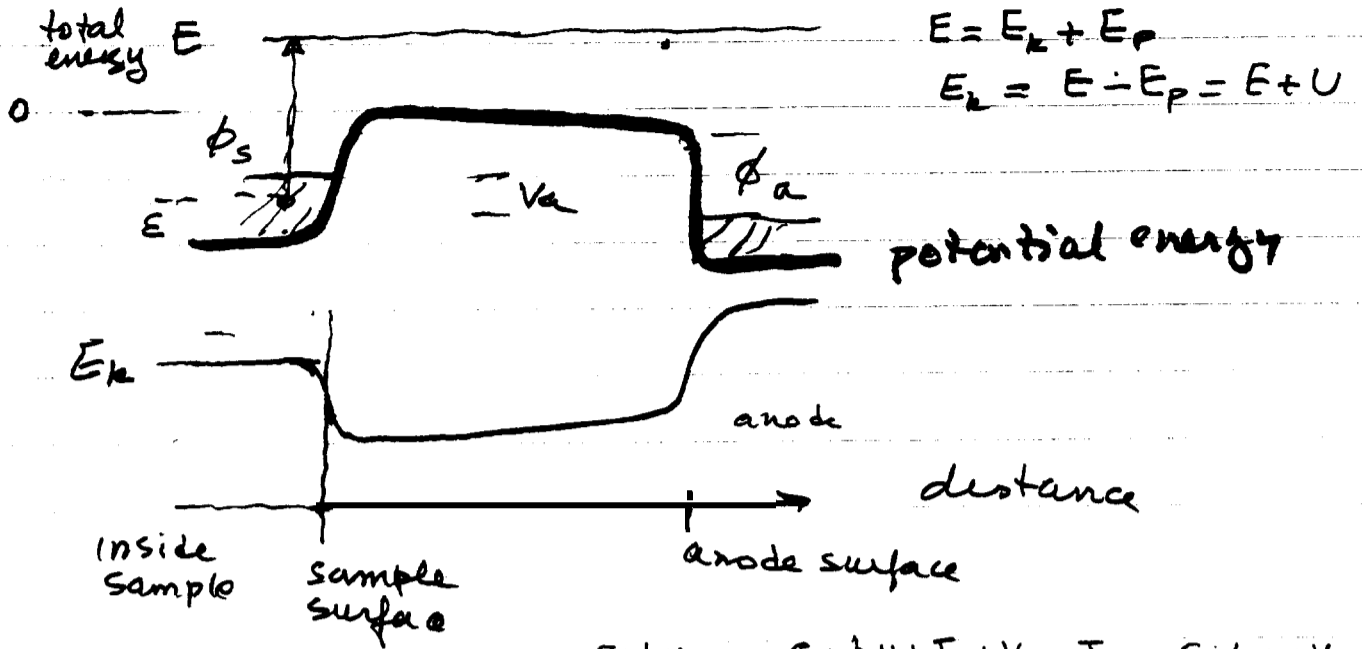 total
energy E
E = E_k + E_p
E_k = E - E_p = E + U
0
ϕ_s
ϕ_a
Va
ε
potential energy
E_k
anode
distance
inside
sample
sample
surface
anode surface